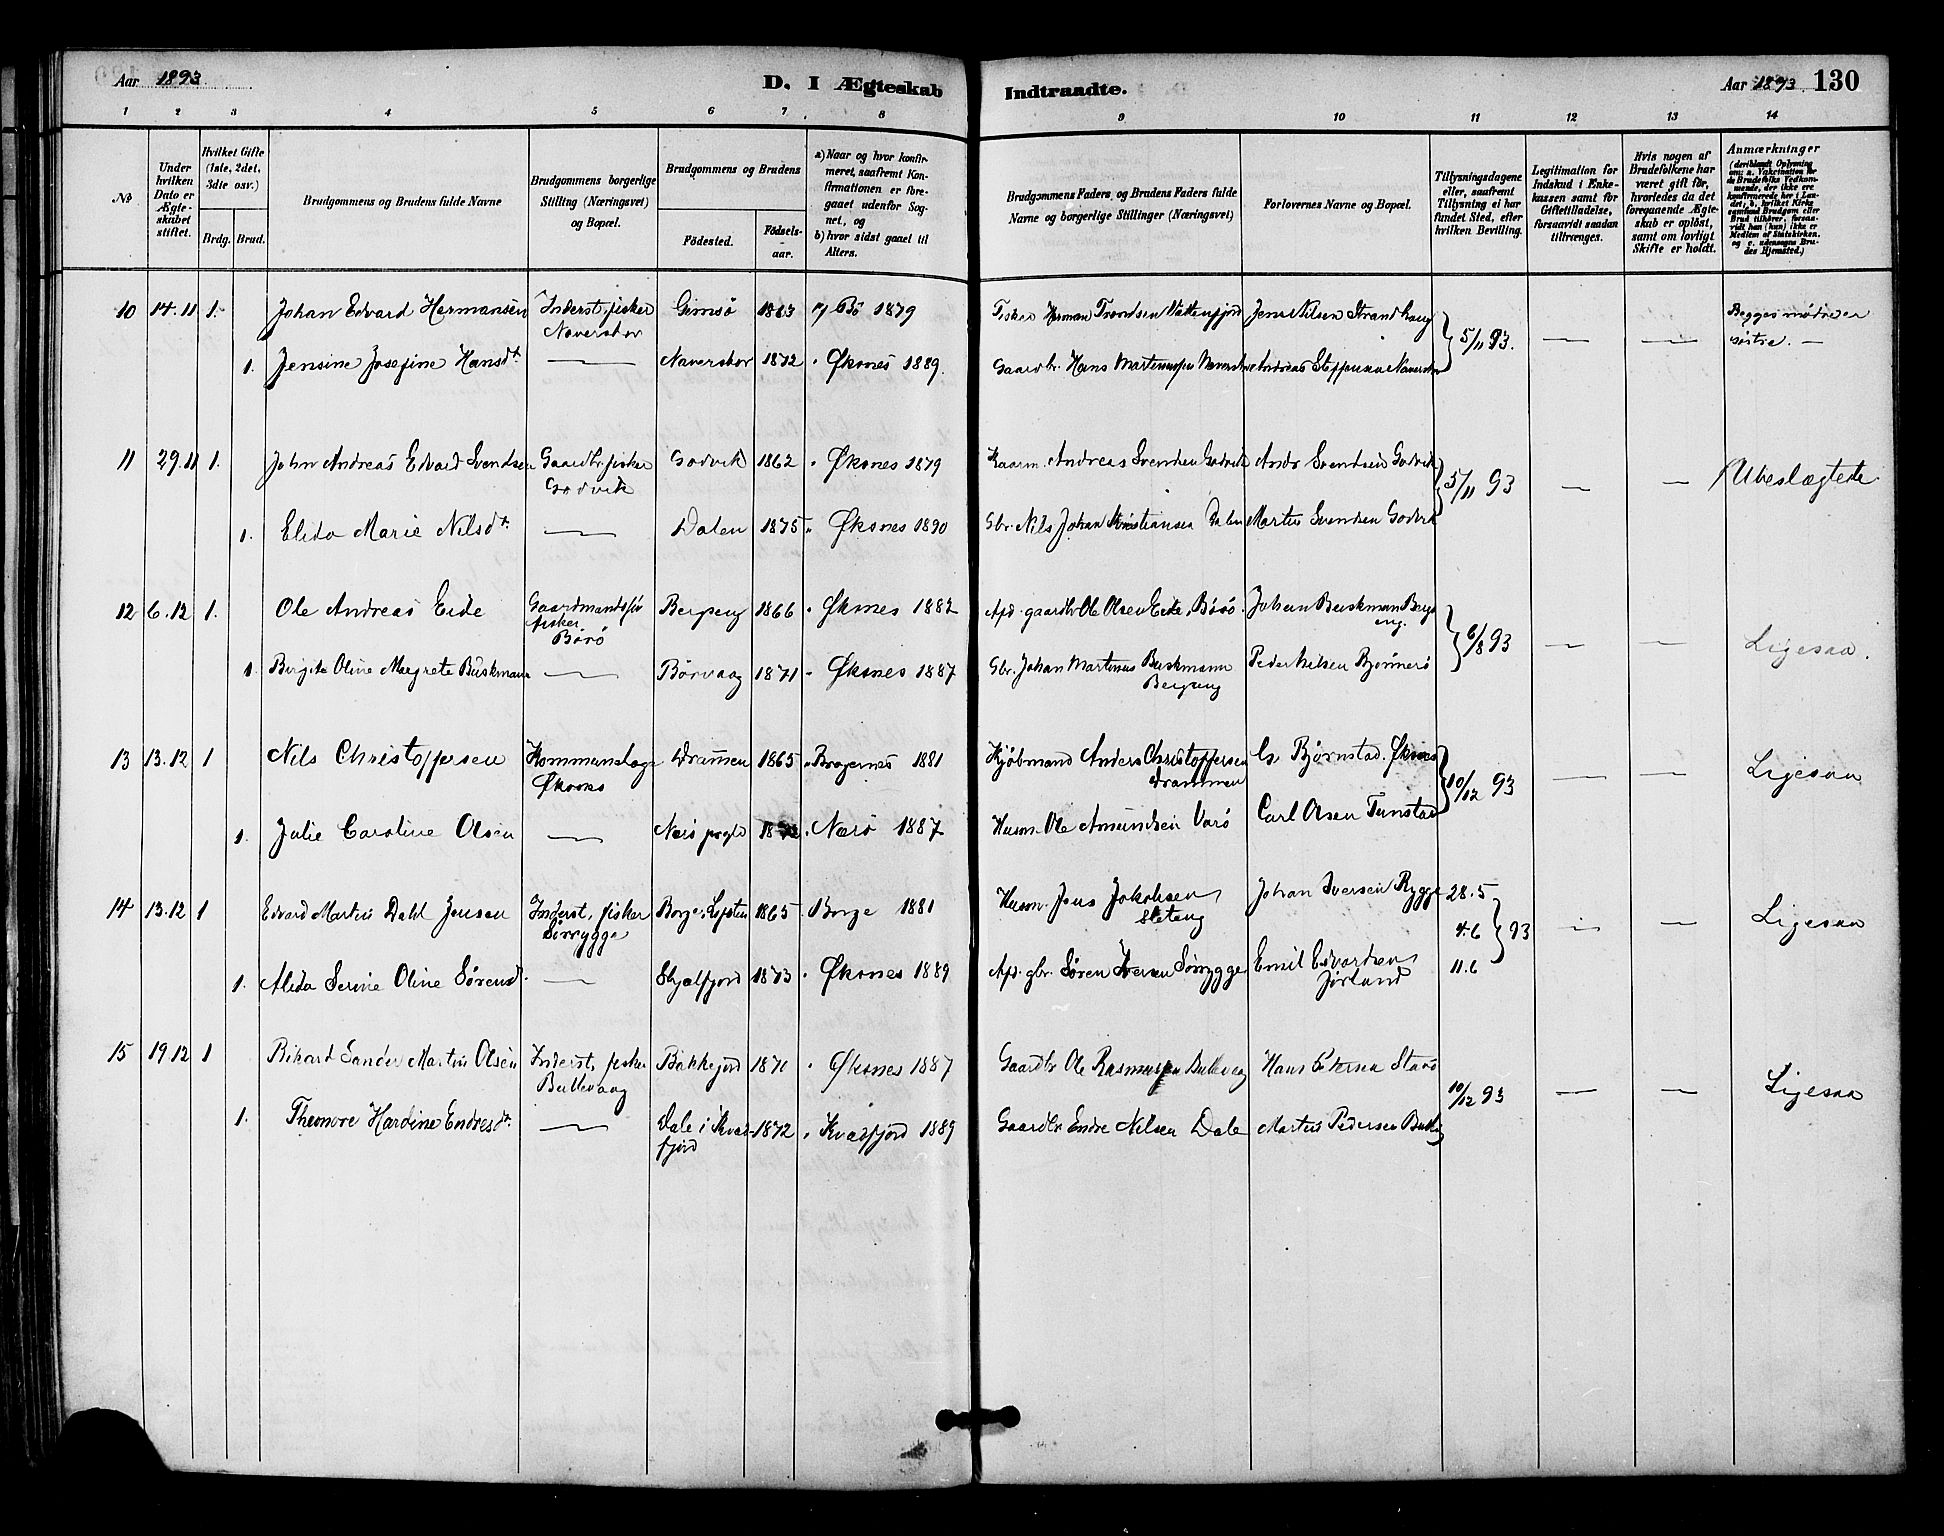 Aar 1893
D. I Ægteskab Indtraadte.
Aar 1893. 130
1 2 3 4 5 6 7 8 9 10 11 12 13 14
No
Under hvilken Dato er Ægteskabet stiftet.
Hvilket Gifte (1ste, 2det, 3die osv.)
Brdg. Brud.
Brudgommens og Brudens fulde Navne
Brudgommens borgerlige Stilling (Næringsvei) og Bopæl.
Brudgommens og Brudens
Fødested.
Fødselsaar.
a) Naar og hvor konfirmeret, saafremt Konfirmationen er foregaaet udenfor Sognet, og
b) hvor sidst gaaet til Alters.
Brudgommens Faders, og Brudens Faders fulde Navne og borgerlige Stillinger (Næringsvei)
Forlovernes Navne og Bopæl.
Tillysningsdagene eller, saafremt Tillysning ei har fundet Sted, efter hvilken Bevilling.
Legitimation for Indskud i Enkekassen samt for Giftetilladelse, forsaavidt saadan tiltrænges.
Hvis nogen af Brudefolkene har været gift før, hvorledes da det foregaaende Ægteskab er opløst, samt om lovligt Skifte er holdt.
Anmærkninger
(deriblandt Oplysning om: a. Vakcination for de Brudefolks Vedkommende, der ikke ere konfirmerede her i Landet, b. hvilket Kirkesamfund Brudgom eller Brud tilhører, forsaavidt han (hun) ikke er Medlem af Statskirken, og c. udensogns Brudes Hjemsted.)
10 14.11 1. Johan Edvard Hermansen Inderst, fisker Gimsø 1863 Bø 1879 Fisker Herman Trondsen Vattenfjord Jens Nilsen Strandhaug 5/11 93. — — Begges mødre er
Naverstor søstre. —
1. Jensine Josefine Hansdt. — Naverstor 1872 " Øksnes 1889. Gaardbr. Hans Martinussen Naverstor Andreas Steffensen Naverstor
11 29.11 1. John Andreas Edvard Svendsen Gaardbr. fisker Godvik 1862 " Øksnes 1879 Kaarm. Andreas Svendsen Godvik Ands Svendsen Godvik 5/11 93 — — Ubeslægtede
Godvik
1. Elida Marie Nilsdt. — Dalen 1875 " Øksnes 1890 Gbr. Nils Johan Kristiansen Dalen Martin Svendsen Godvik
12 6.12 1. Ole Andreas Eide Gaardmandssøn Bergeng 1866 " Øksnes 1882 Afd. gaardbr Ole Olsen Eide, Børø. Johan Buskmann Berg-
fisker eng.
Børø 6/8 93 — — Ligesaa.
1. Birgite Oline Margrete Buskmann — Børvaag 1871 " Øksnes 1887 Gbr. Johan Martinus Buskmann Peder Nilsen Bjørnerø
Bergeng
13 13.12 1 Nils Christoffersen Kommunelæge Drammen 1865 " Bragernes 1881 Kjøbmand Anders Christoffersen Bjørnstad. Øksnes
Øksnes Drammen 10/12 93 — — Ligesaa
1. Julie Caroline Olsen — Nærø prgld " Nærø 1887 Husm. Ole Amundsen Varø Carl Olsen Tunstad
14 13.12 1 Edvard Martin Dahl Jensen Inderst, fisker Borge, Lofoten 1865 " Borge 1881 Husm. Jens Jakobsen Johan Iversen Rygge 28.5
Sørrygge Sleteng 4.6 93 — — Ligesaa
1. Alida Serine Oline Sørensd. — Skjælfjord 1873 " Øksnes 1889 Afd. gbr. Søren Iversen Sørrygge Emil Edvardsen 11.6
Jørland
15 19.12 1 Rikard Sander Martin Olsen Inderst, fisker Bakkejord 1870 " Øksnes 1887 Gaardbr Ole Rasmussen Bullevag Hans Petersen Starø
Bullevaag 10/12 93 — — Ligesaa
1. Themore Hardine Endresdt. — Dale i Kvæd- 1872 " Kvædfjord 1889 Gaardbr Endre Nilsen Dale Martus Pedersen
fjord